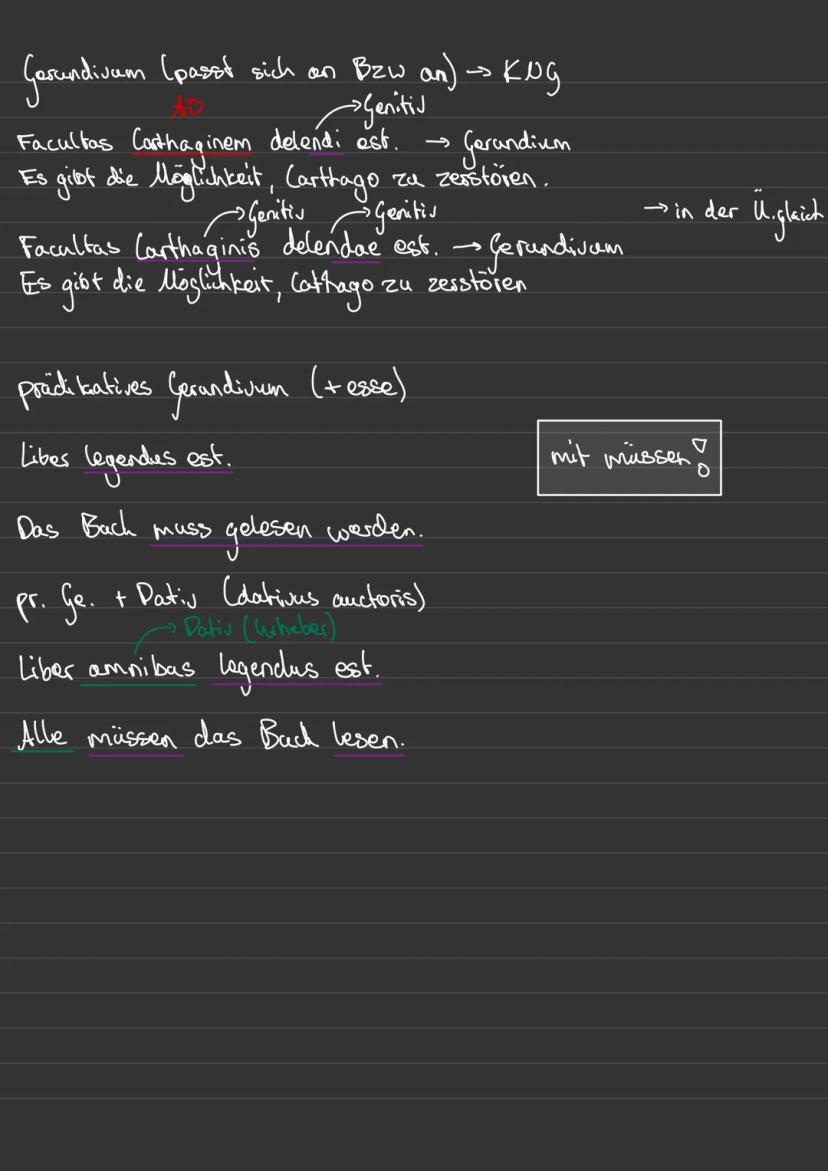 Gerundivum (passt sich an Bzw an) → KNG
AO
→ Genitiv
Facultas Carthaginem delendi est. → Gerundium
Es gibt die Möglichkeit, Carthago zu zerstören.
→ Genitiv → Genitiv → in der Ü. gleich
Facultas Carthaginis delendae est. → Gerundivum
Es gibt die Möglichkeit, Cathago zu zerstören
prädikatives Gerundivum (+ esse)
Liber legendus est.
mit müssen!
Das Buch muss gelesen werden.
pr. Ge. + Dativ (dativus auctoris)
→ Dativ (Urheber)
Liber omnibus legendus est.
Alle müssen das Buch lesen.